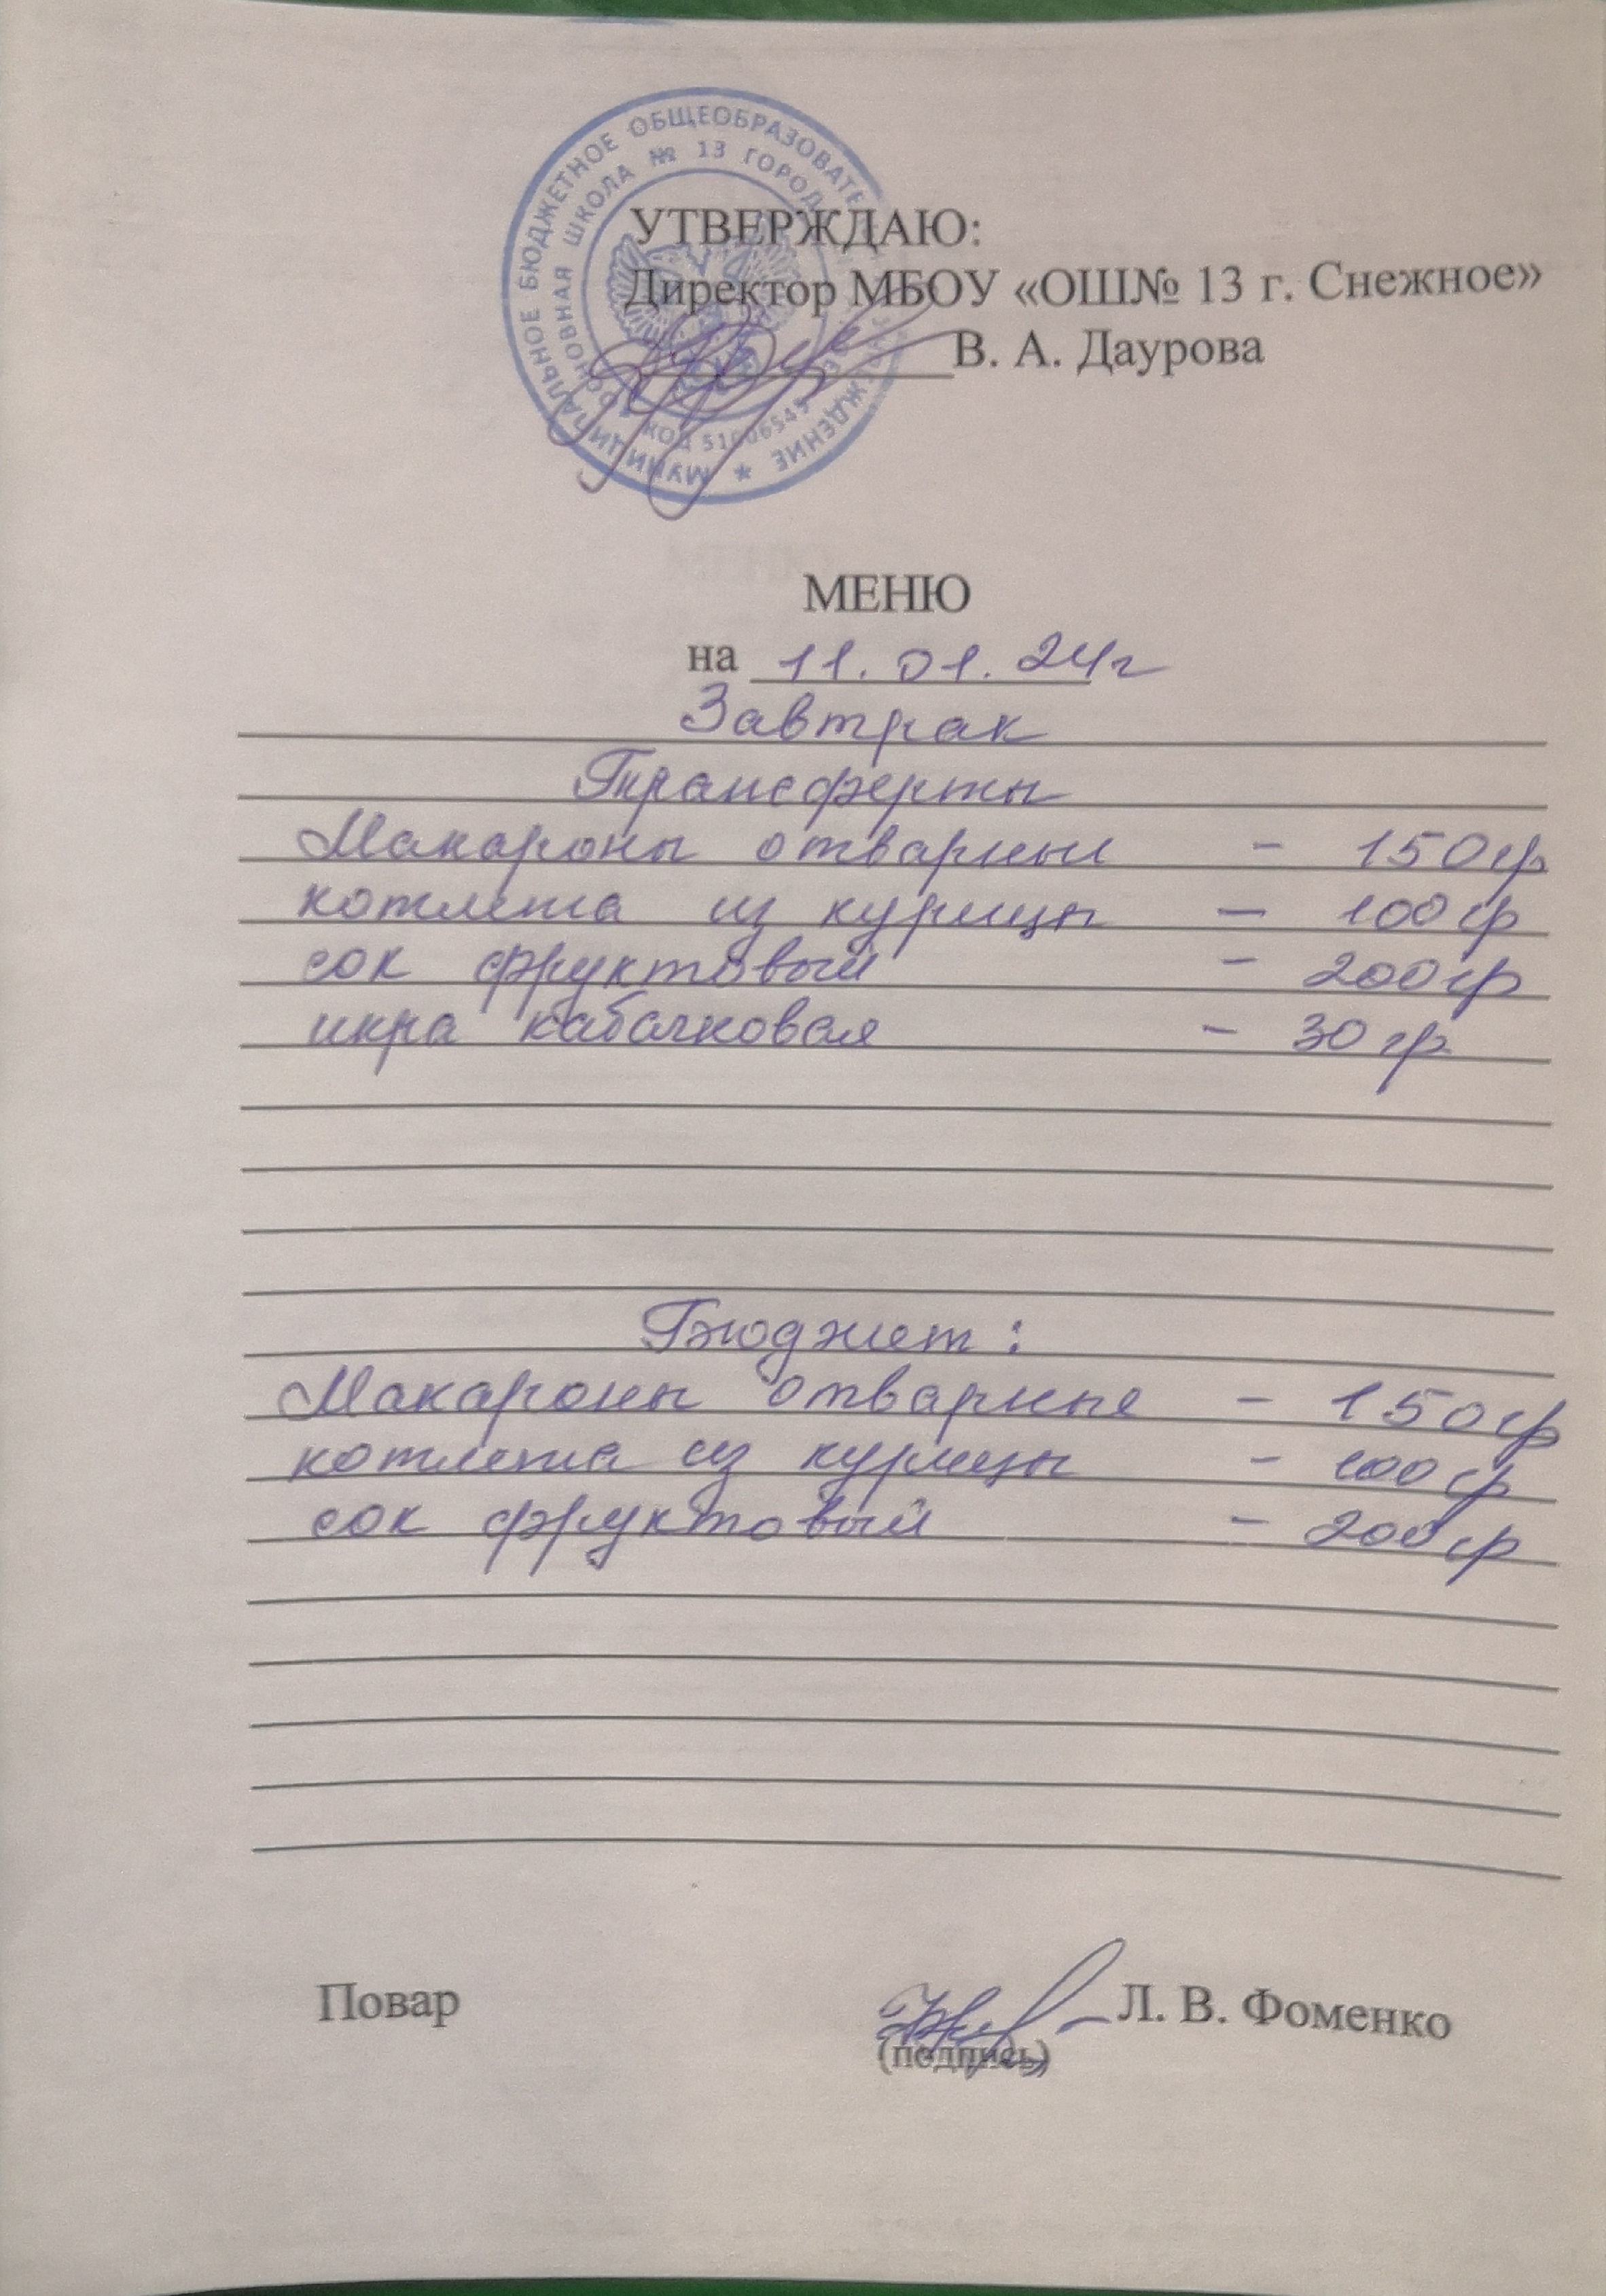 МУНИЦИПАЛЬНОЕ БЮДЖЕТНОЕ ОБЩЕОБРАЗОВАТЕ
ОСНОВНАЯ ШКОЛА № 13 ГОРОД
УТВЕРЖДАЮ:
Директор МБОУ «ОШ№ 13 г. Снежное»
В. А. Даурова
МЕНЮ
на 11.01.24г
Завтрак
Трансферты
Макароны отварные - 150гр
котлета из курицы - 100гр
сок фруктовый - 200гр
икра кабачковая - 30гр.
Бюджет:
Макароны отварные - 150гр
котлета из курицы - 100гр
сок фруктовый - 200гр
Повар Л. В. Фоменко
(подпись)